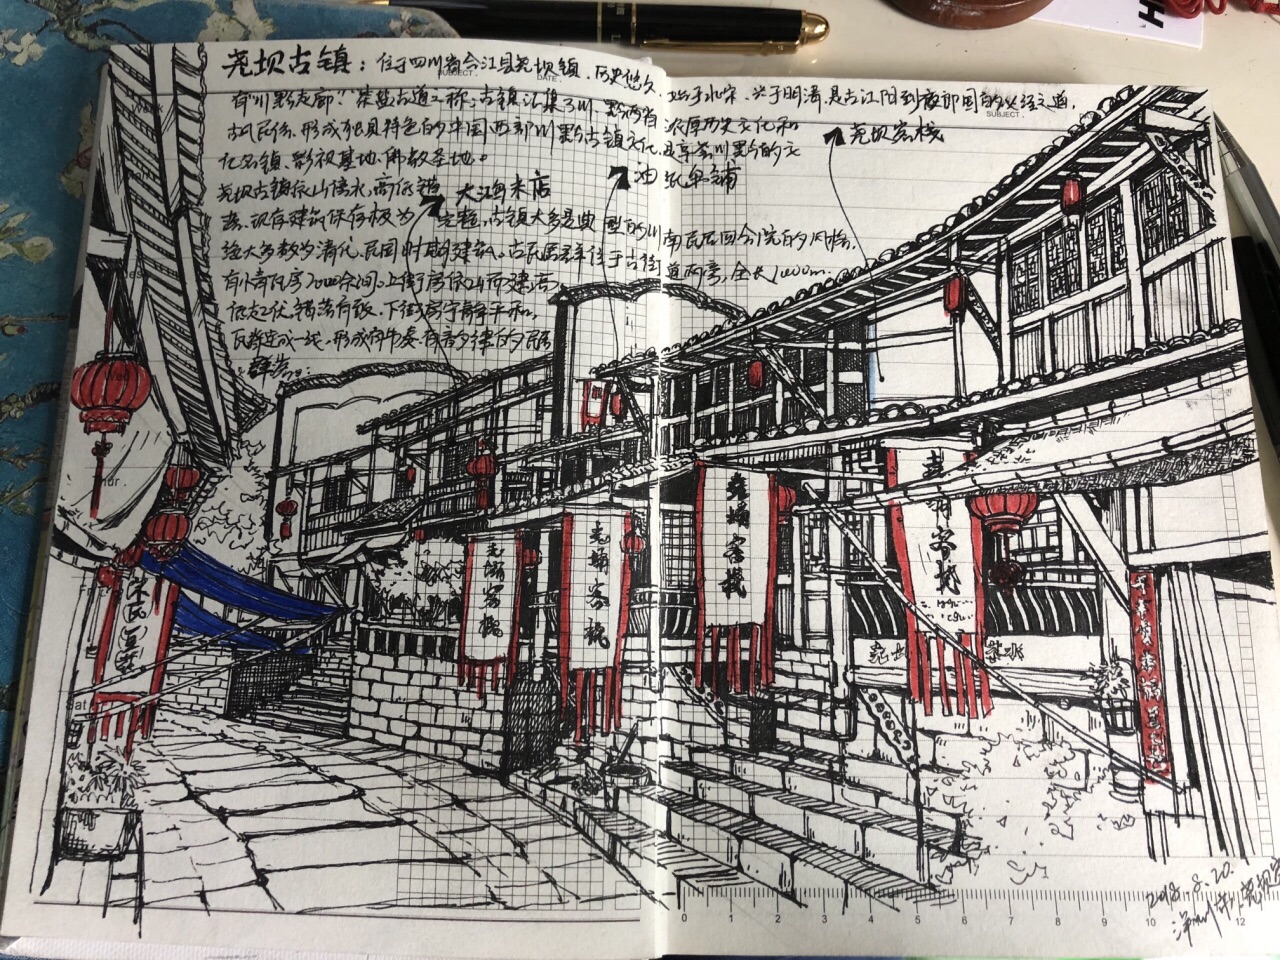 尧坝古镇：位于四川省合江县尧坝镇，历史悠久，始于北宋，兴于明清，是古江阳到夜郎国的必经之道，
SUBJECT. DATE. SUBJECT.
有"川黔走廊"茶盐古道之称；古镇汇集了川、黔两省浓厚历史文化和
古风民俗，形成独具特色的中国西部川黔古镇文化，享誉川黔的文
化名镇、影视基地、佛教圣地。
尧坝客栈
油纸伞铺
大鸿米店
尧坝古镇依山傍水，高低错
落，现存建筑保存极为完整，古镇大多是典型的川南民居四合院的风格，
绝大多数为清代、民国时期建筑。古民居位于古街道两旁，全长1000m.
有小青瓦房2000余间，上街房依山而建，高
低起伏，错落有致，下街房宇
瓦脊连成一线，形成有音韵律的民居
群落。
尧坝客栈
尧坝客栈
尧坝客栈
尧坝客栈
尧坝
0 1 2 3 4 5 6 7 8 9 10 12
2018.8.20.
H